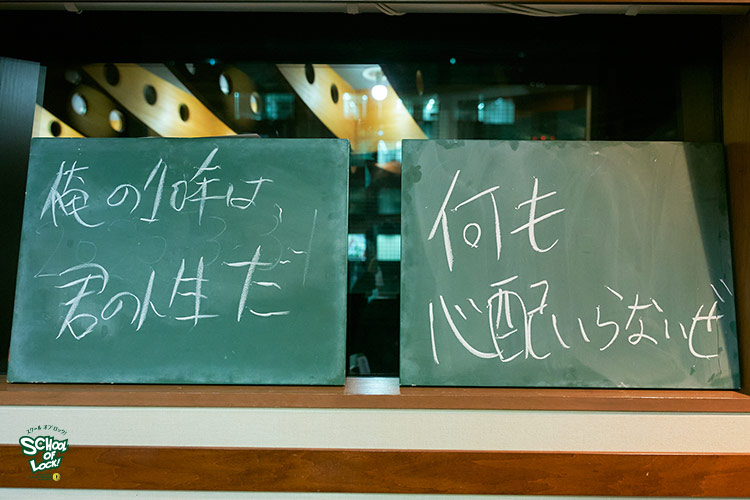 俺の10年は
君の人生だ
何も
心配いらないぜ
スクール オブ ロック!
SCHOOL
OF
LOCK!